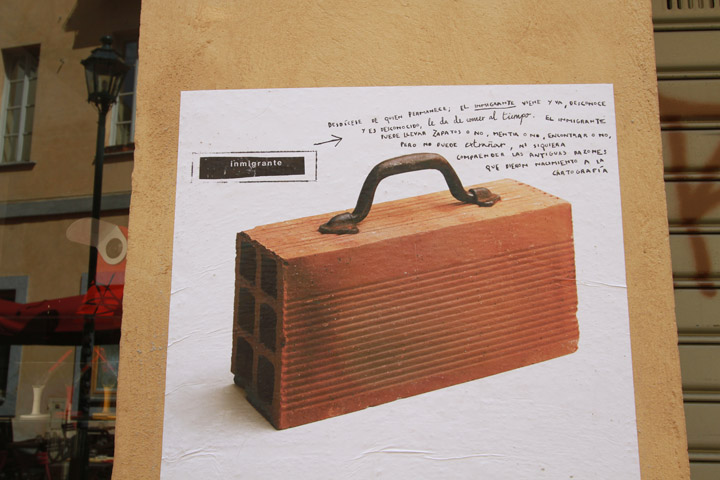 DESDÍCESE DE QUIEN PERMANECE; EL INMIGRANTE VIENE Y VA, DESCONOCE
Y ES DESCONOCIDO, le da de comer al tiempo. EL INMIGRANTE
PUEDE LLEVAR ZAPATOS O NO, MENTIR O NO, ENCONTRAR O NO,
PERO NO PUEDE extrañar, NI SIQUIERA
COMPRENDER LAS ANTIGUAS RAZONES
QUE DIERON NACIMIENTO A LA
CARTOGRAFÍA
inmigrante